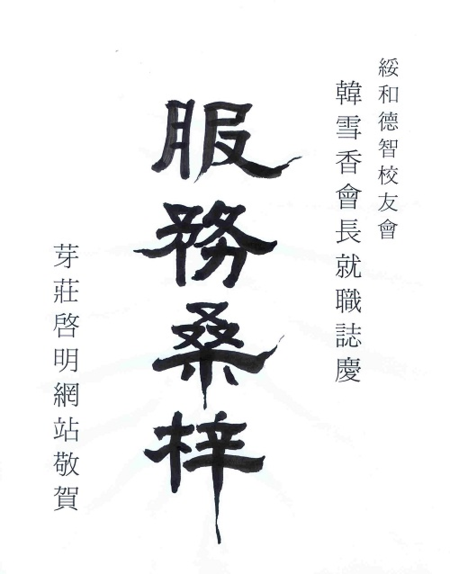 綏和德智校友會
韓雪香會長就職誌慶
服務桑梓
芽莊啓明網站敬賀